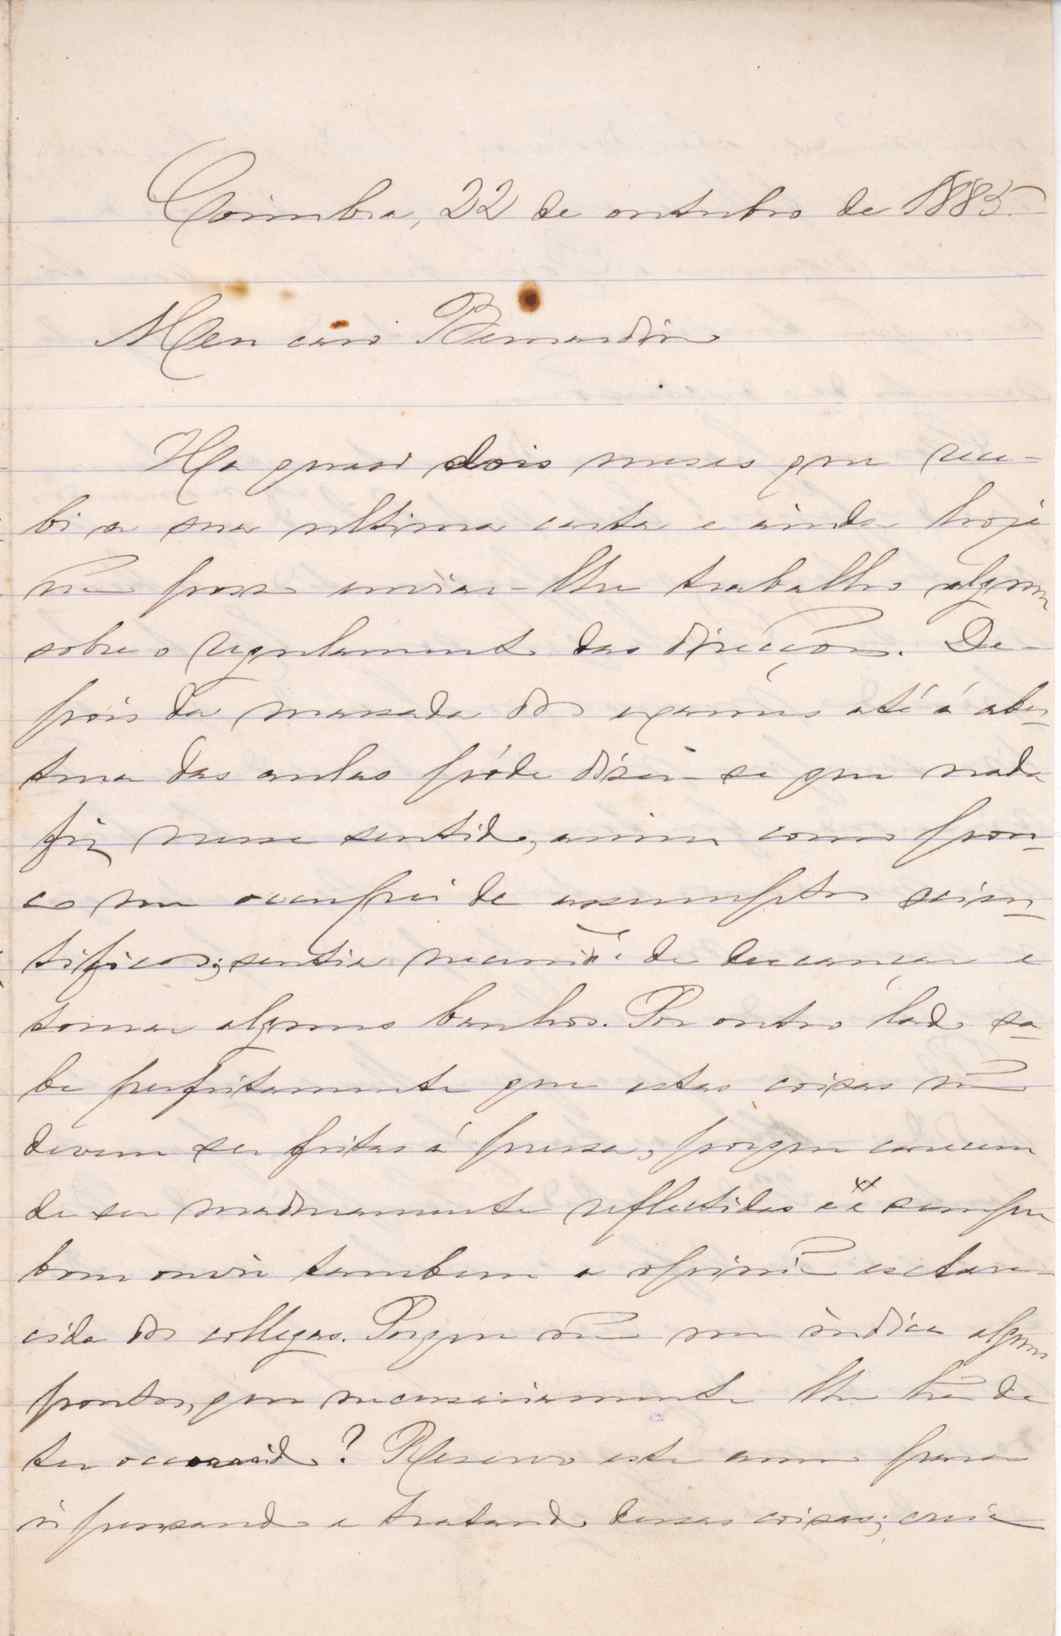 Coimbra, 22 de outubro de 1885.
Meu caro Bernardino
Ha quasi dois meses que rece-
bi a sua ultima carta e ainda hoje
não posso enviar-lhe trabalho algum
sobre o regulamento das direcções. De-
pois da massada dos exames até á aber-
tura das aulas póde dizer-se que nada
fiz nesse sentido, assim como pou-
co me occupei de assumptos scien-
tificos; sentia necessid.e de descançar e
tomar alguns banhos. Por outro lado sa-
be perfeitamente que estas coisas não
devem ser feitas á pressa, porque carecem
de ser maduramente reflectidas e é sempre
bom ouvir tambem a opinião esclare-
cida dos collegas. Porque não me indica alguns
pontos, que necessariamente lhe hão de
ter occorrido? Reservo este anno para
ir pensando e tratando dessas coisas; creia